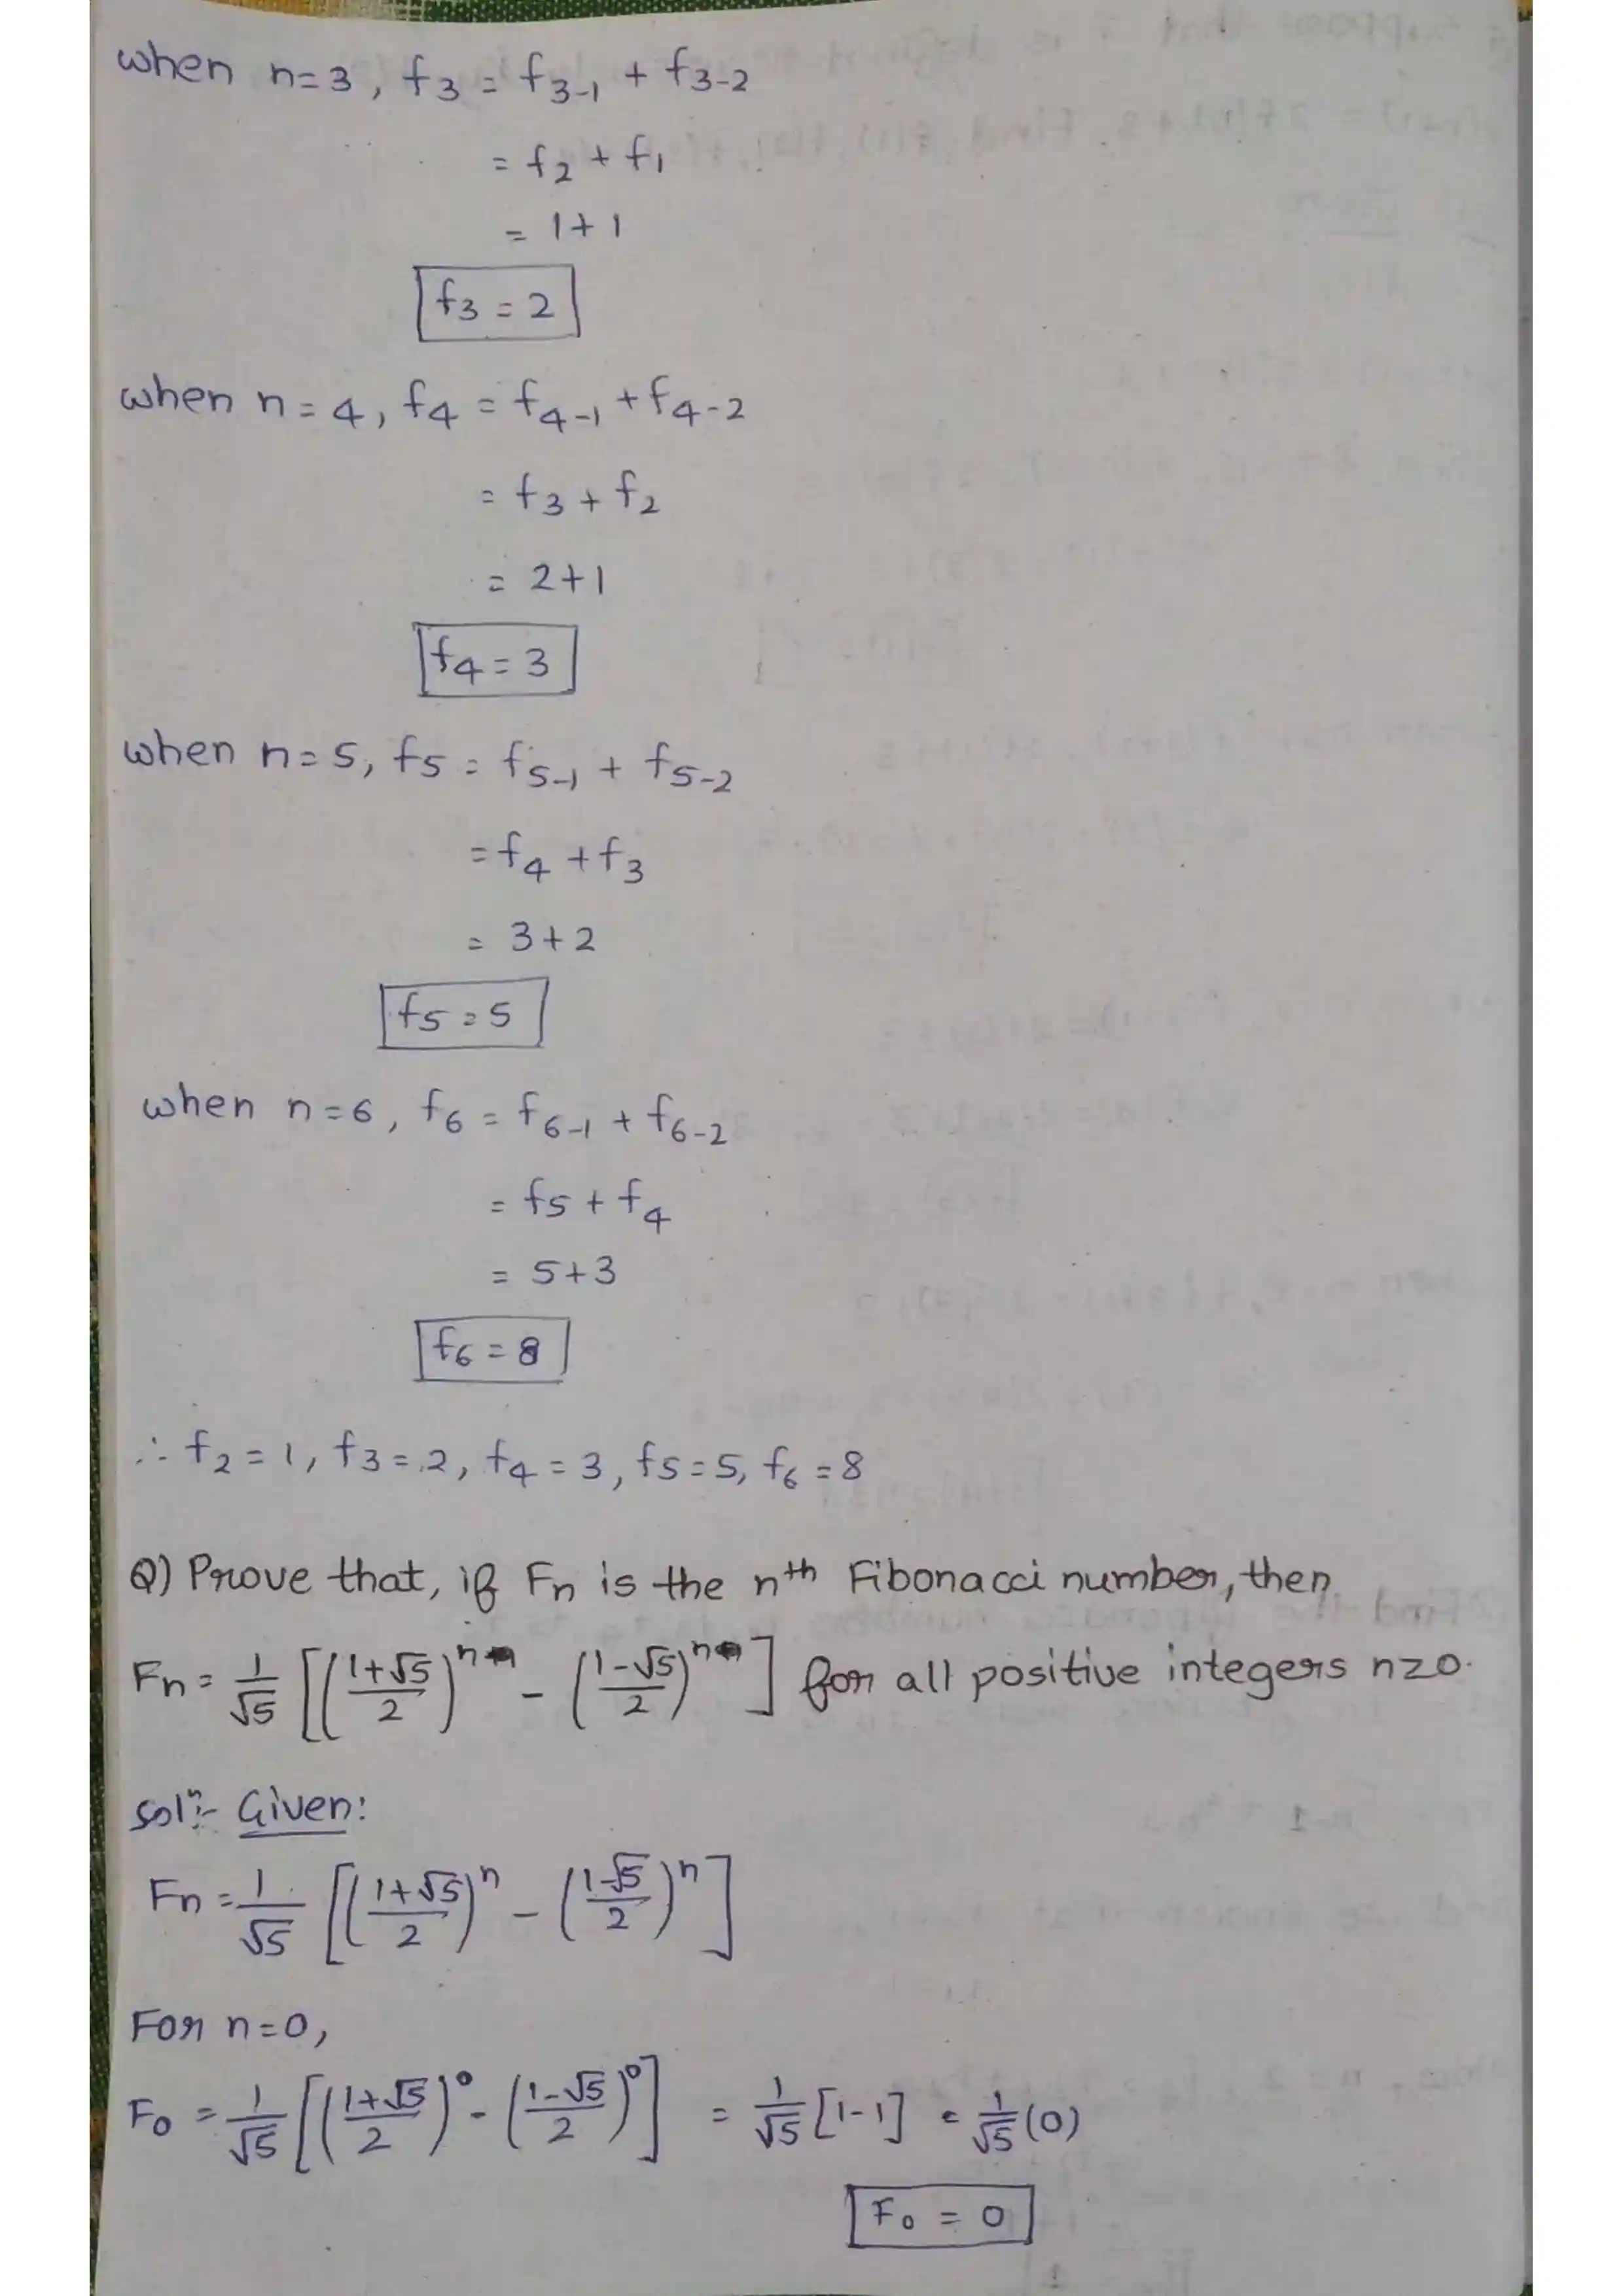 when n=3, f₃ = f₃₋₁ + f₃₋₂
= f₂ + f₁
= 1+1
f₃ = 2
when n=4, f₄ = f₄₋₁ + f₄₋₂
= f₃ + f₂
= 2+1
f₄ = 3
when n=5, f₅ = f₅₋₁ + f₅₋₂
= f₄ + f₃
= 3+2
f₅ = 5
when n=6, f₆ = f₆₋₁ + f₆₋₂
= f₅ + f₄
= 5+3
f₆ = 8
∴ f₂ = 1, f₃ = 2, f₄ = 3, f₅ = 5, f₆ = 8
Q) Prove that, if Fn is the nth Fibonacci number, then
Fn = 1/√5 [((1+√5)/2)ⁿ - ((1-√5)/2)ⁿ] for all positive integers n≥0.
Solⁿ:- Given:
Fn = 1/√5 [((1+√5)/2)ⁿ - ((1-√5)/2)ⁿ]
For n=0,
F₀ = 1/√5 [((1+√5)/2)⁰ - ((1-√5)/2)⁰] = 1/√5 [1-1] = 1/√5 (0)
F₀ = 0